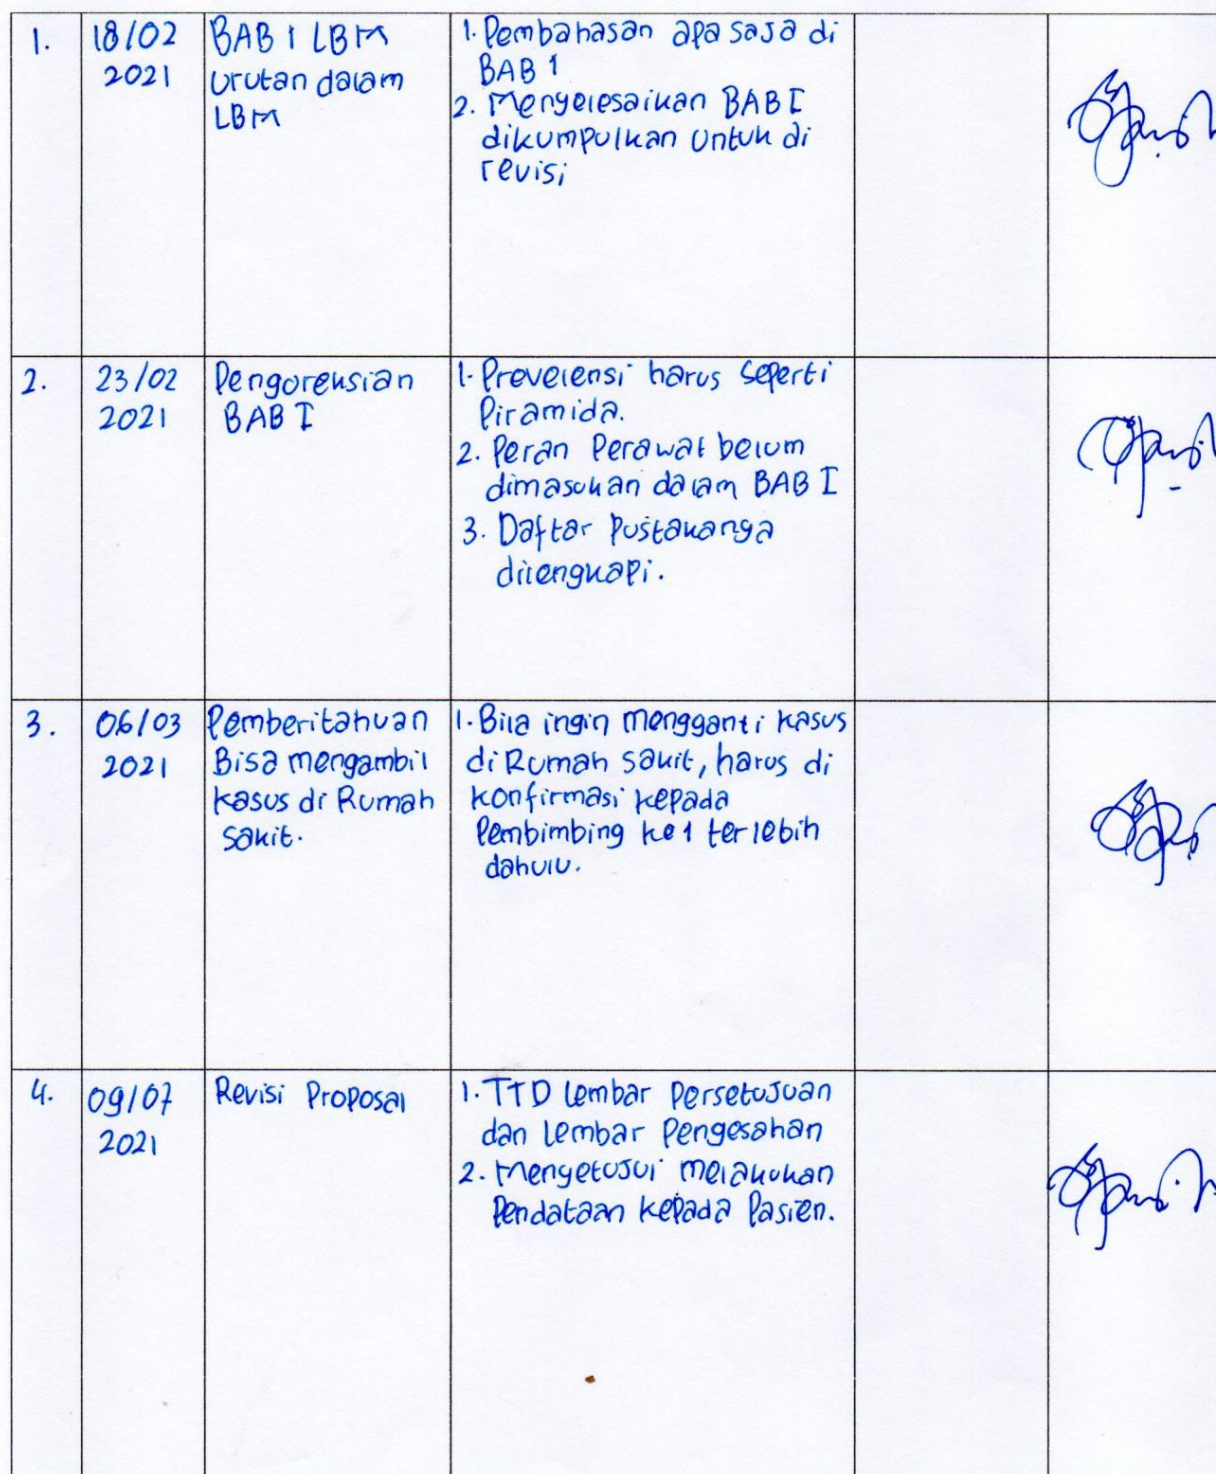 1.
18/02
2021
BAB 1 LBM
Urutan dalam
LBM
1. Pembahasan apa saja di
BAB 1
2. Menyelesaikan BAB I
dikumpulkan untuk di
revisi
2.
23/02
2021
Pengoreksian
BAB I
1. Prevelensi harus seperti
Piramida.
2. Peran Perawat belum
dimasukan dalam BAB I
3. Daftar Pustakanya
dilengkapi.
3.
06/03
2021
Pemberitahuan
Bisa mengambil
kasus di Rumah
sakit.
1. Bila ingin mengganti kasus
di Rumah sakit, harus di
konfirmasi kepada
Pembimbing ke 1 terlebih
dahulu.
4.
09/07
2021
Revisi Proposal
1. TTD Lembar Persetujuan
dan Lembar Pengesahan
2. Menyetujui melakukan
Pendataan kepada Pasien.